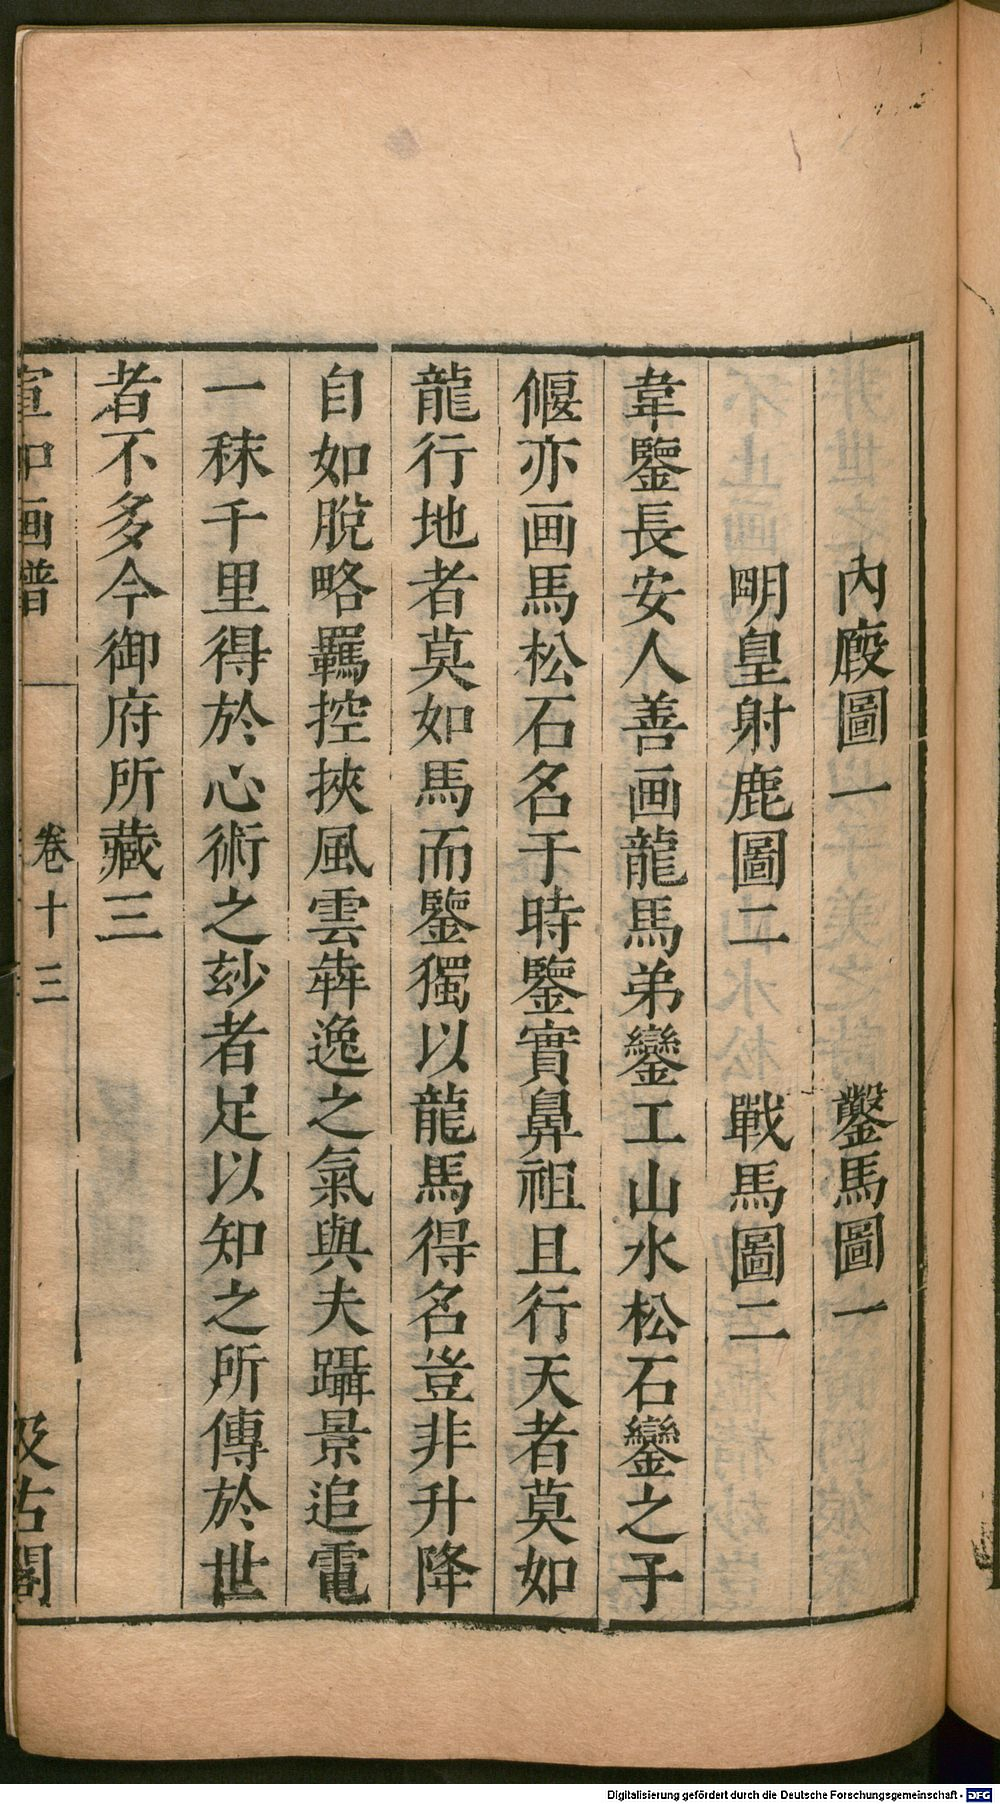 內廄圖一　鑿馬圖一
明皇射鹿圖二　戰馬圖二
韋鑒長安人善画龍馬弟鑾工山水松石鑾之子
偃亦画馬松石名于時鑒實鼻祖且行天者莫如
龍行地者莫如馬而鑒獨以龍馬得名豈非升降
自如脫略羈控挾風雲犇逸之氣與夫躡景追電
一秣千里得於心術之玅者足以知之所傳於世
者不多今御府所藏三
宣和画譜　卷十三　汲古閣
Digitalisierung gefördert durch die Deutsche Forschungsgemeinschaft - DFG